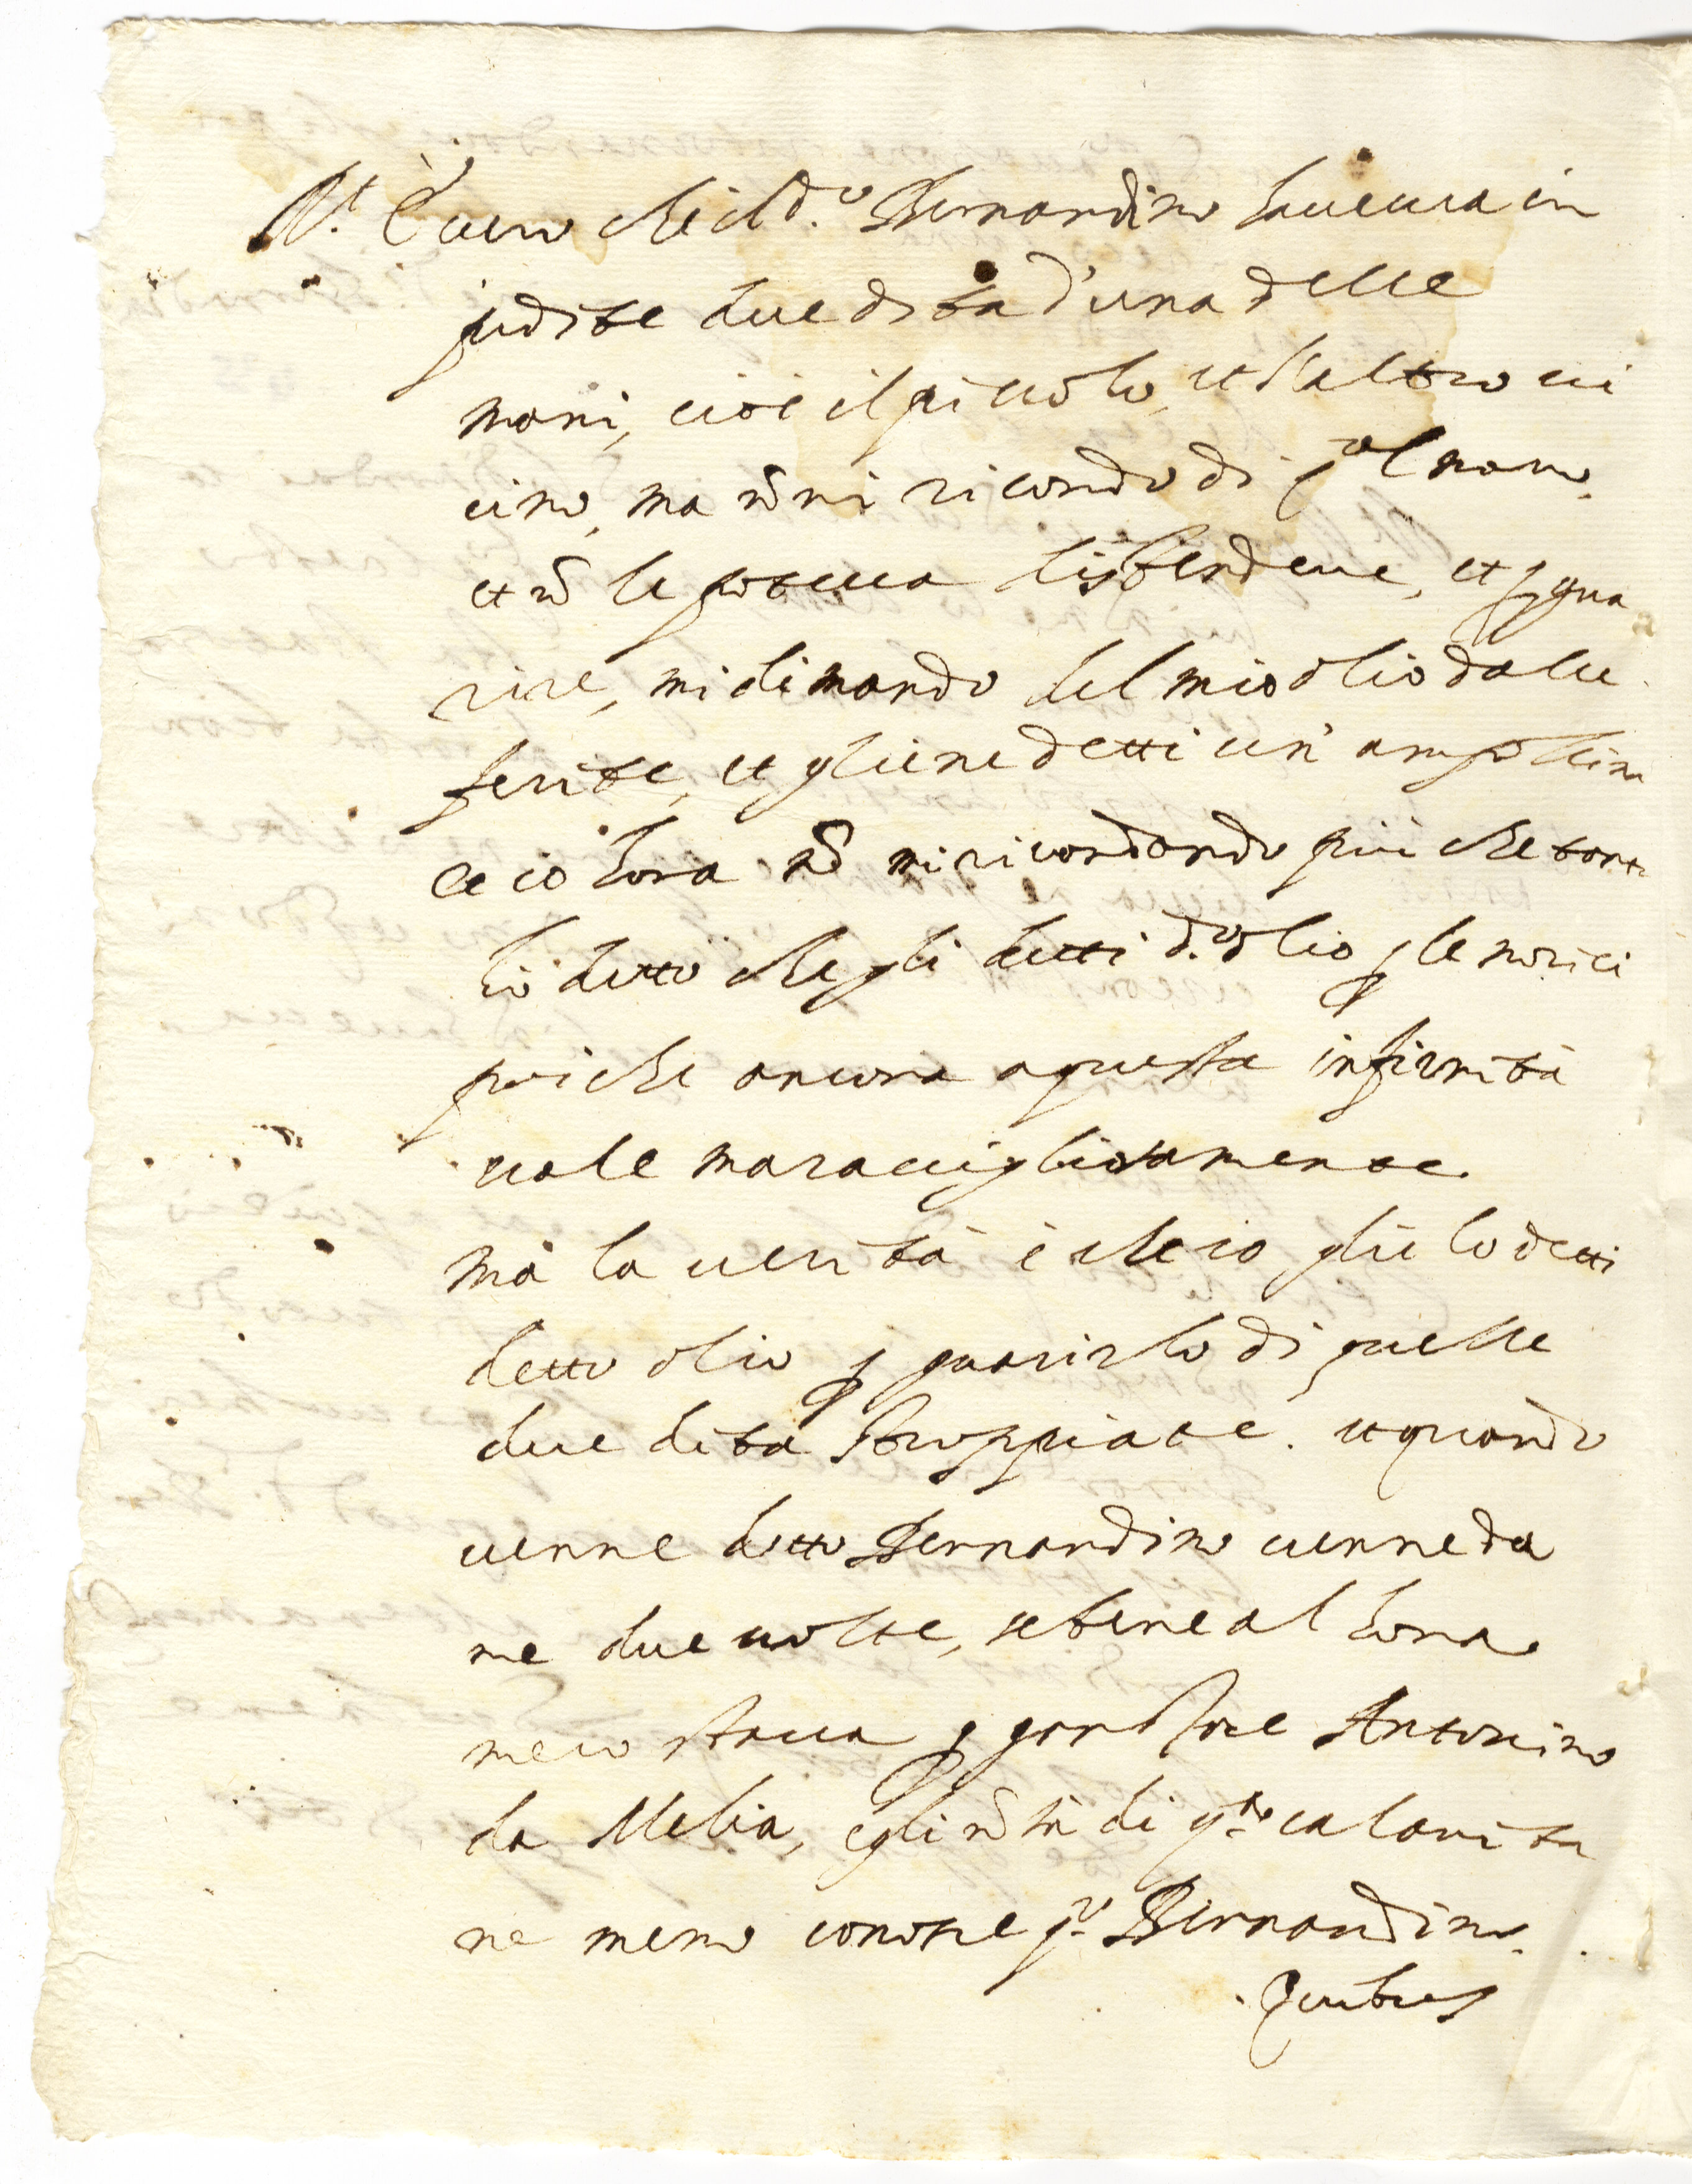 Rt. È uero che il d.o Bernardino haueua in
pedite due dita d'una delle
mani, cioè il piccolo, et l'altro ui
cino, ma nō mi ricordo di qal mano
et nō le poteua distendere, et p gua
rire, mi dimandò del mio olio dalle
ferite, et gliene detti un' ampollina
et io hora nō mi ricordando più che tanto
hò detto che gli detti d.o olio p le morici
poiche ancora a questa infirmità
uale marauigliosamente.
mà la uerità è che io gliè lo detti
detto olio p guarirlo di quelle
due dita stroppiate. et quando
uenne detto Bernardino uenne da
me due uolte, se bene al hora
meco staua p garzone Antonino
da Melia, egli nō sà di q.ta calamita
ne meno conosce q.o Bernardino.
Quibus